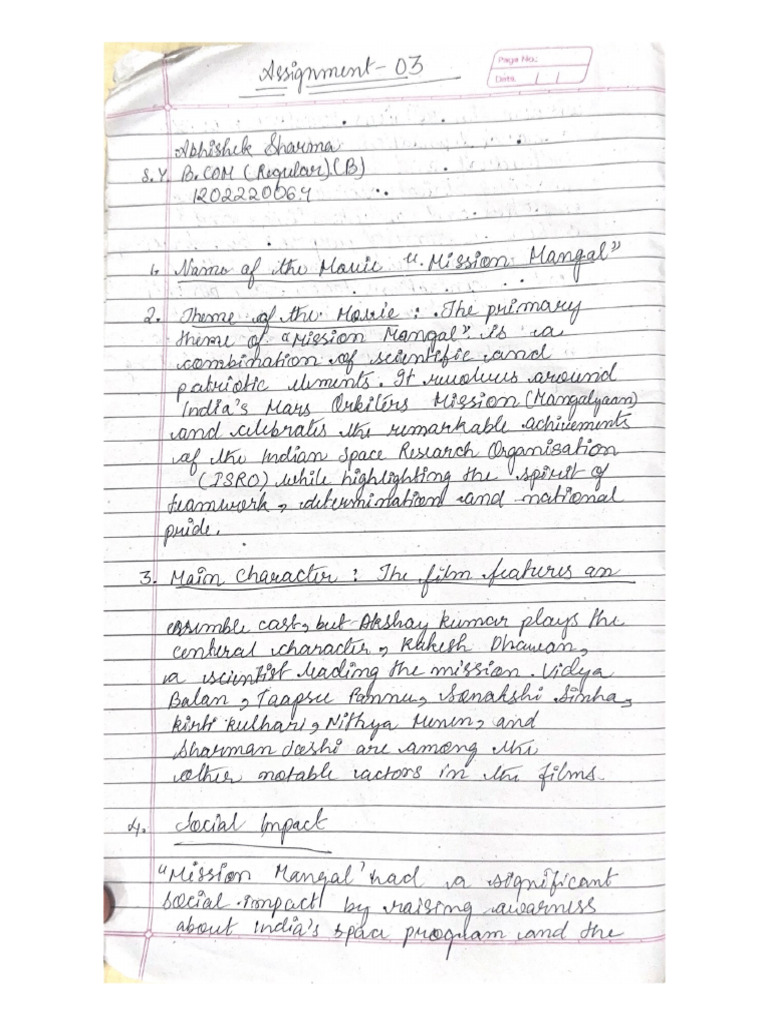 Assignment-03
Page No.:
Date / /
Abhishek Sharma
S.Y. B.COM (Regular)(B)
1202220064
1. Name of the Movie "Mission Mangal"
2. Theme of the Movie : The primary
theme of "Mission Mangal" is a
combination of scientific and
patriotic elements. It revolves around
India's Mars Orbiters Mission (Mangalyaan)
and celebrates the remarkable achivements
of the Indian Space Research Organisation
(ISRO) while highlighting the spirit of
teamwork, determination and national
pride.
3. Main Character : The film features an
essimble cast, but Akshay Kumar plays the
centeral character, Rakesh Dhawan,
a scientist leading the mission. Vidya
Balan, Taapsee Pannu, Sonakshi Sinha,
Kirti Kulhari, Nithya Menen, and
Sharman Joshi are among the
other notable actors in the films.
4. Social Impact
"Mission Mangal' had a significant
social impact by raising awarness
about India's space program and the